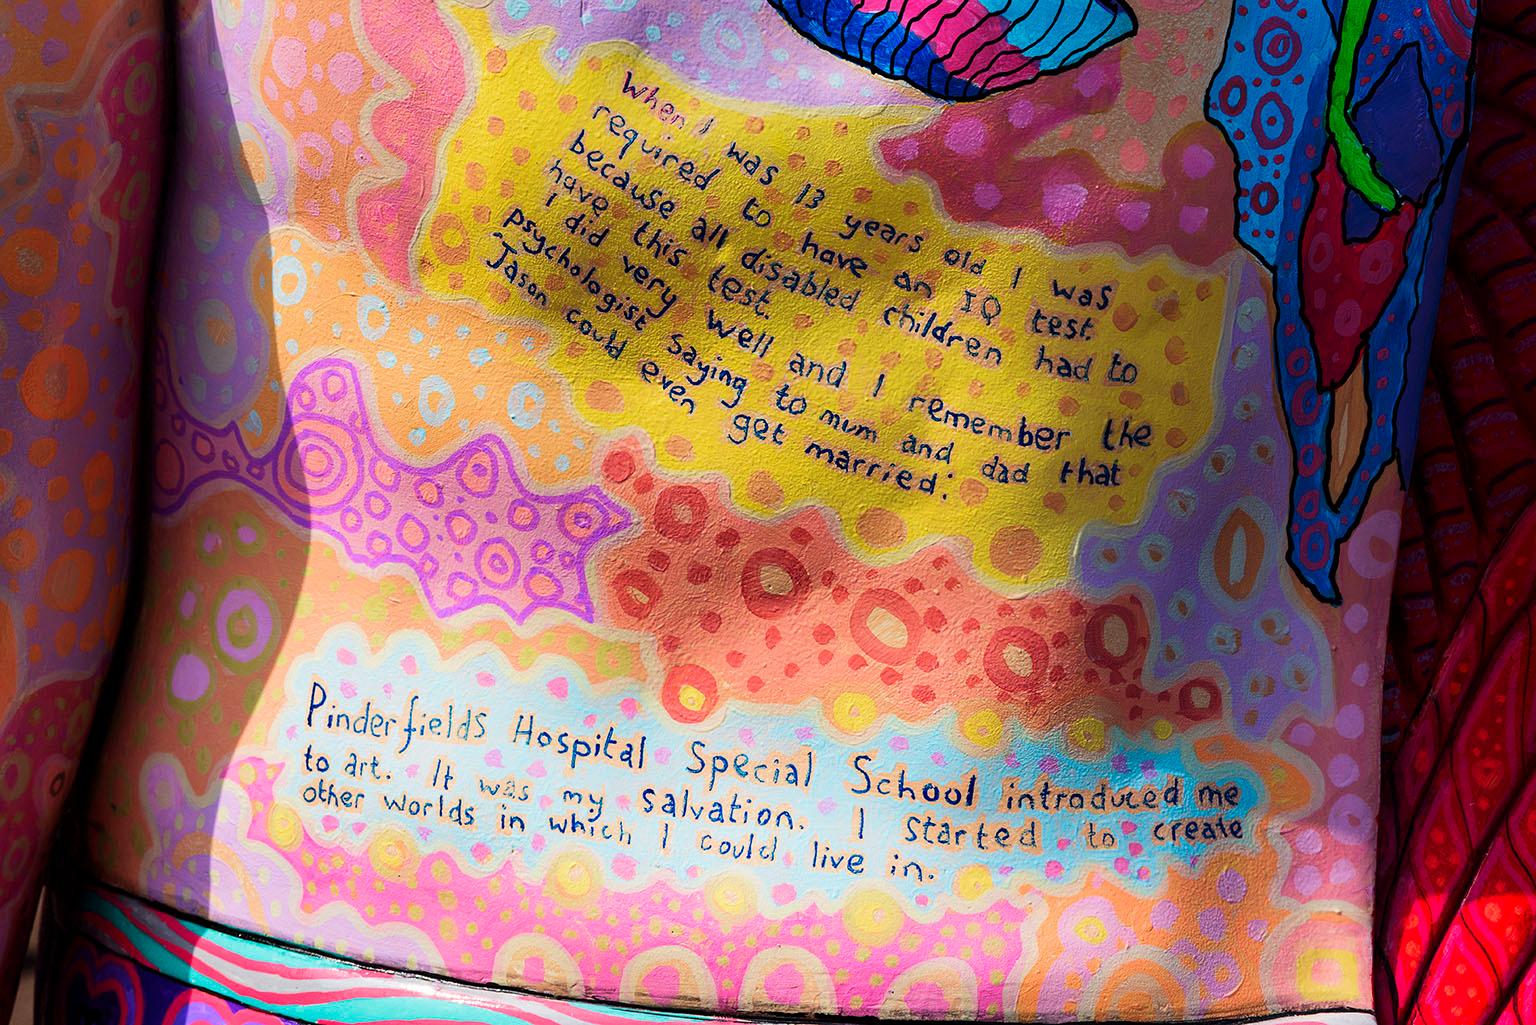 When I was 13 years old I was
required to have an IQ test
because all disabled children had to
have this test.
I did very well and I remember the
psychologist saying to mum and dad that
'Jason could even get married:
Pinderfields Hospital Special School introduced me
to art. It was my salvation. I started to create
other worlds in which I could live in.